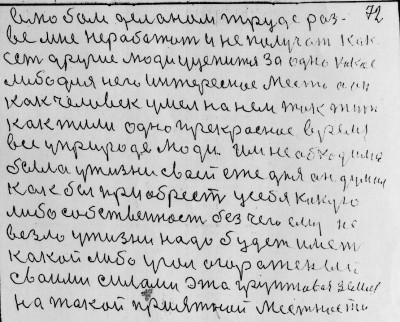 72
было бы делано труде раз-
ве мне неработат и не получат как
сеть другие люди ценит за одно какое
либо для него интересное место а он
как человек умел на нем так жит
как жили одно прекрасное время
все уприроде люди им необходимо
была ужизни своей ежедня он думал
как бы приобрест усебя какую
либо собственност без чего ему не
везло ужизни надо будет имет
какой либо угол огороженый
своими силами эта грунтовая земля
на такой приятной местности